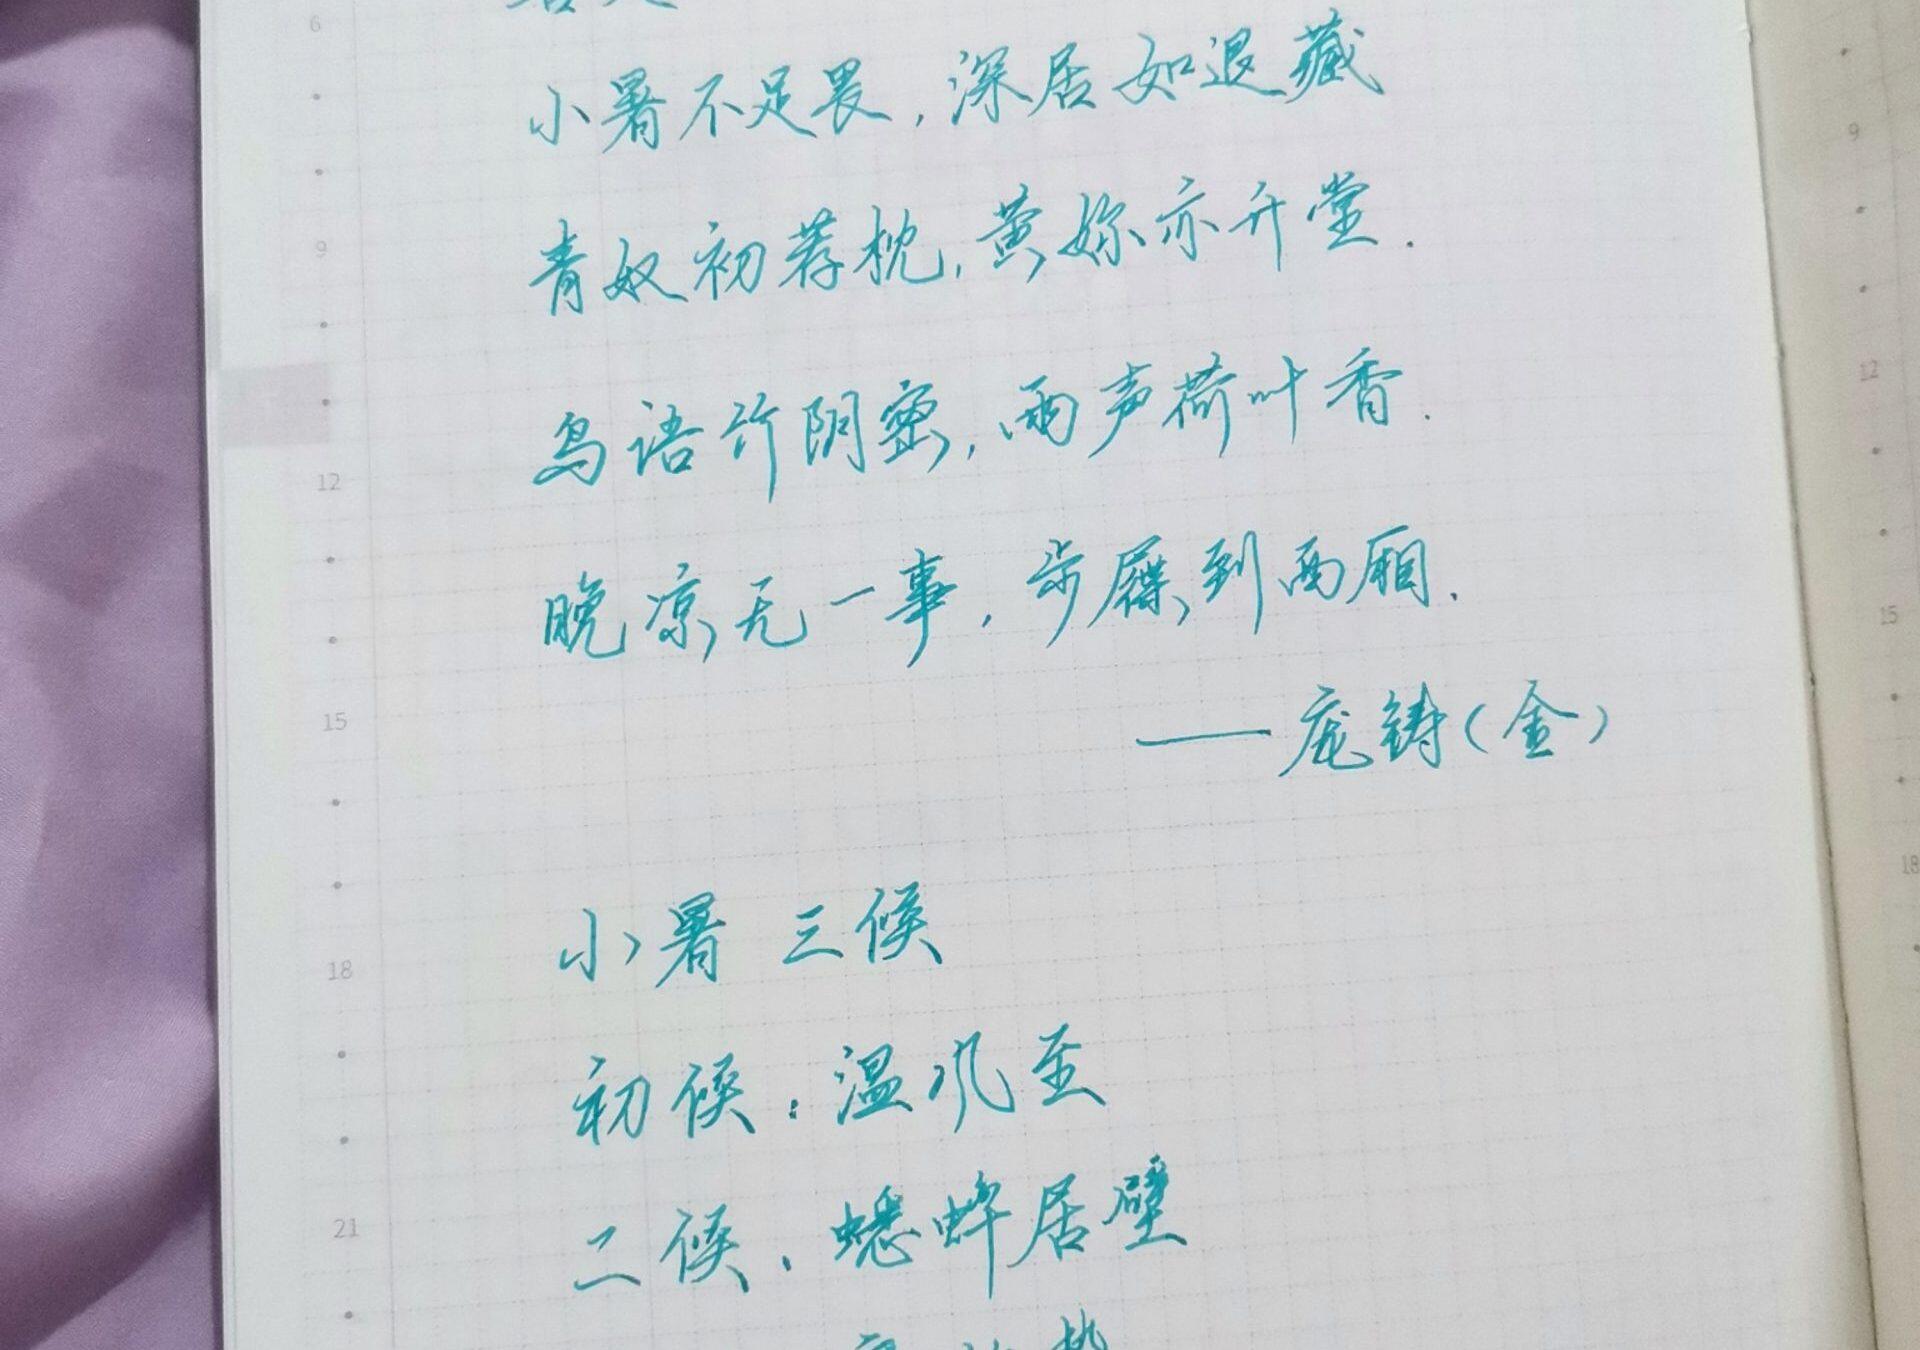 6
小暑不足畏，深居如退藏
青奴初荐枕，黄妳亦升堂.
9
鸟语竹阴密，雨声荷叶香.
12
晚凉无一事，步屧到西厢.
15
——庞铸（金）
小暑 三候
18
初候：温风至
二候：蟋蟀居壁
21
9
12
15
18